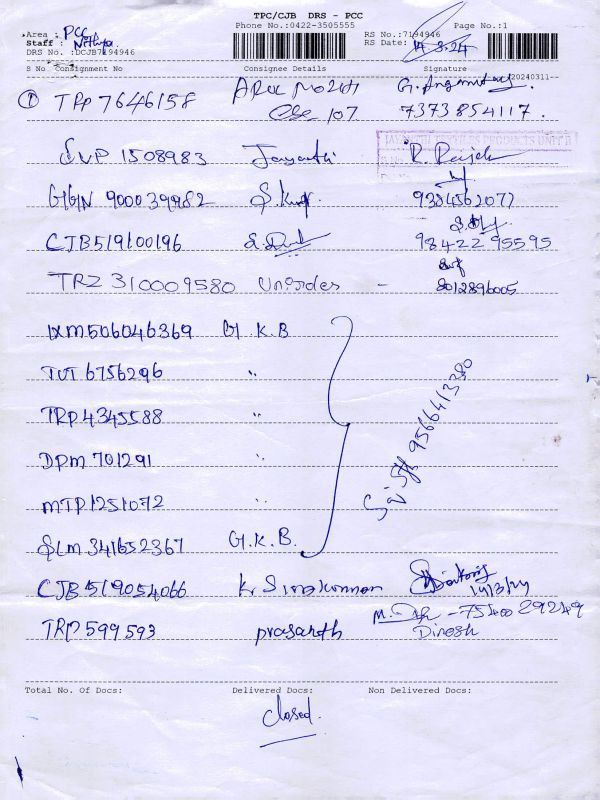 TPC/CJB DRS - PCC
Phone No.:0422-3505555 Page No.:1
Area : PCC
Staff : Nithya.
RS No.:7194946
RS Date: 14.3.24
DRS No. :DCJB7194946
S No Consignment No Consignee Details Signature
20240311--
① TRP 7646158
107 7373854117.
SVP 1508983 Jayanthi R. Rajesh
GGN 900039982 S. Kumar 9384562077
CJB519100196 98422 95595
TRZ 310009580 - 8012896005
IXM506046369 G.K.B
TUT 6756296 "
TRP 4345588 "
DPM 701291 "
MTP1251072 "
SLM 341652367 G.K.B.
9566413380
CJB 519054066 K. Sivakannan 14/3/24
TRP 599593 prasanth Dinesh - 75400 29249
Total No. Of Docs: Delivered Docs: Non Delivered Docs:
closed.